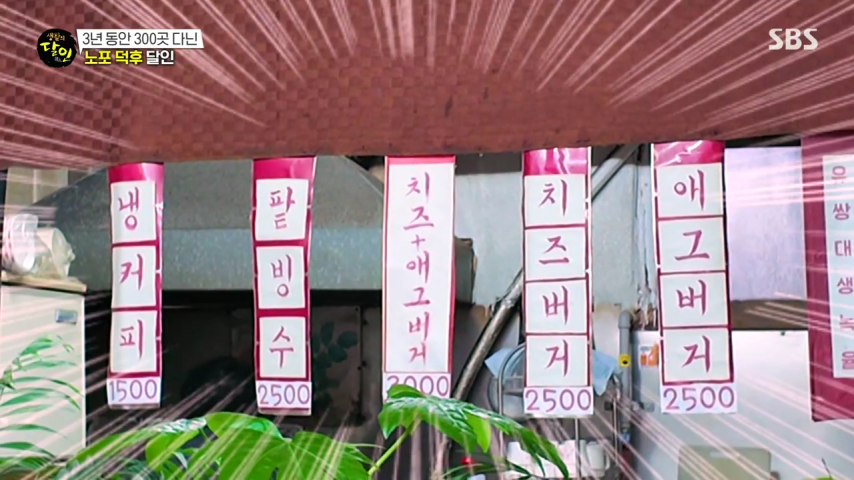 생활의
달인
3년 동안 300곳 다닌
노포 덕후 달인
SBS
냉커피
1500
팥빙수
2500
치즈+애그버거
치즈버거
2500
애그버거
2500
유쌍대생녹율